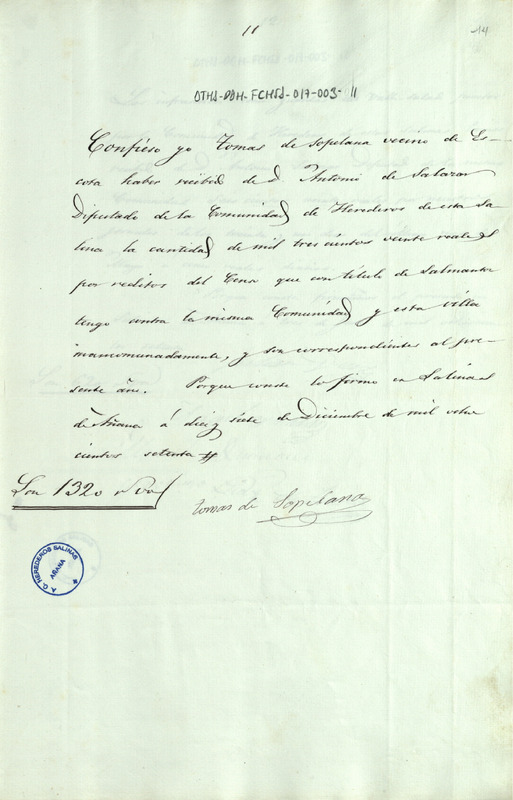 11
14
OTHJ-DAH-FCHSJ-017-003- 11
Confieso yo Tomas de Sopelana vecino de Es-
cota haber recibido de D. Antonio de Salazar
Diputado de la Comunidad de Herederos de esta Sa
lina la cantidad de mil trescientos veinte reales
por reditos del Censo que con titulo de Salmanton
tengo contra la misma Comunidad y esta villa
inancomunadamente, y son correspondientes al pre-
sente año. Porque conste lo firmo en Salinas
de Añana á diez y siete de Diciembre de mil ocho
cientos setenta
Son 1320 rs von
Tomas de Sopelana
A. G. HEREDEROS SALINAS
AÑANA